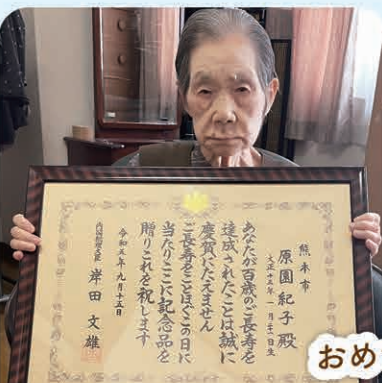 熊本市
原園紀子殿
大正 年一月 日生
あなたが百歳のご長寿を
達成されたことは誠に
慶賀にたえません
ご長寿をことほぐこの日に
当たりここに記念品を
贈りこれを祝します
令和五年九月十五日
内閣総理大臣 岸田文雄
おめ